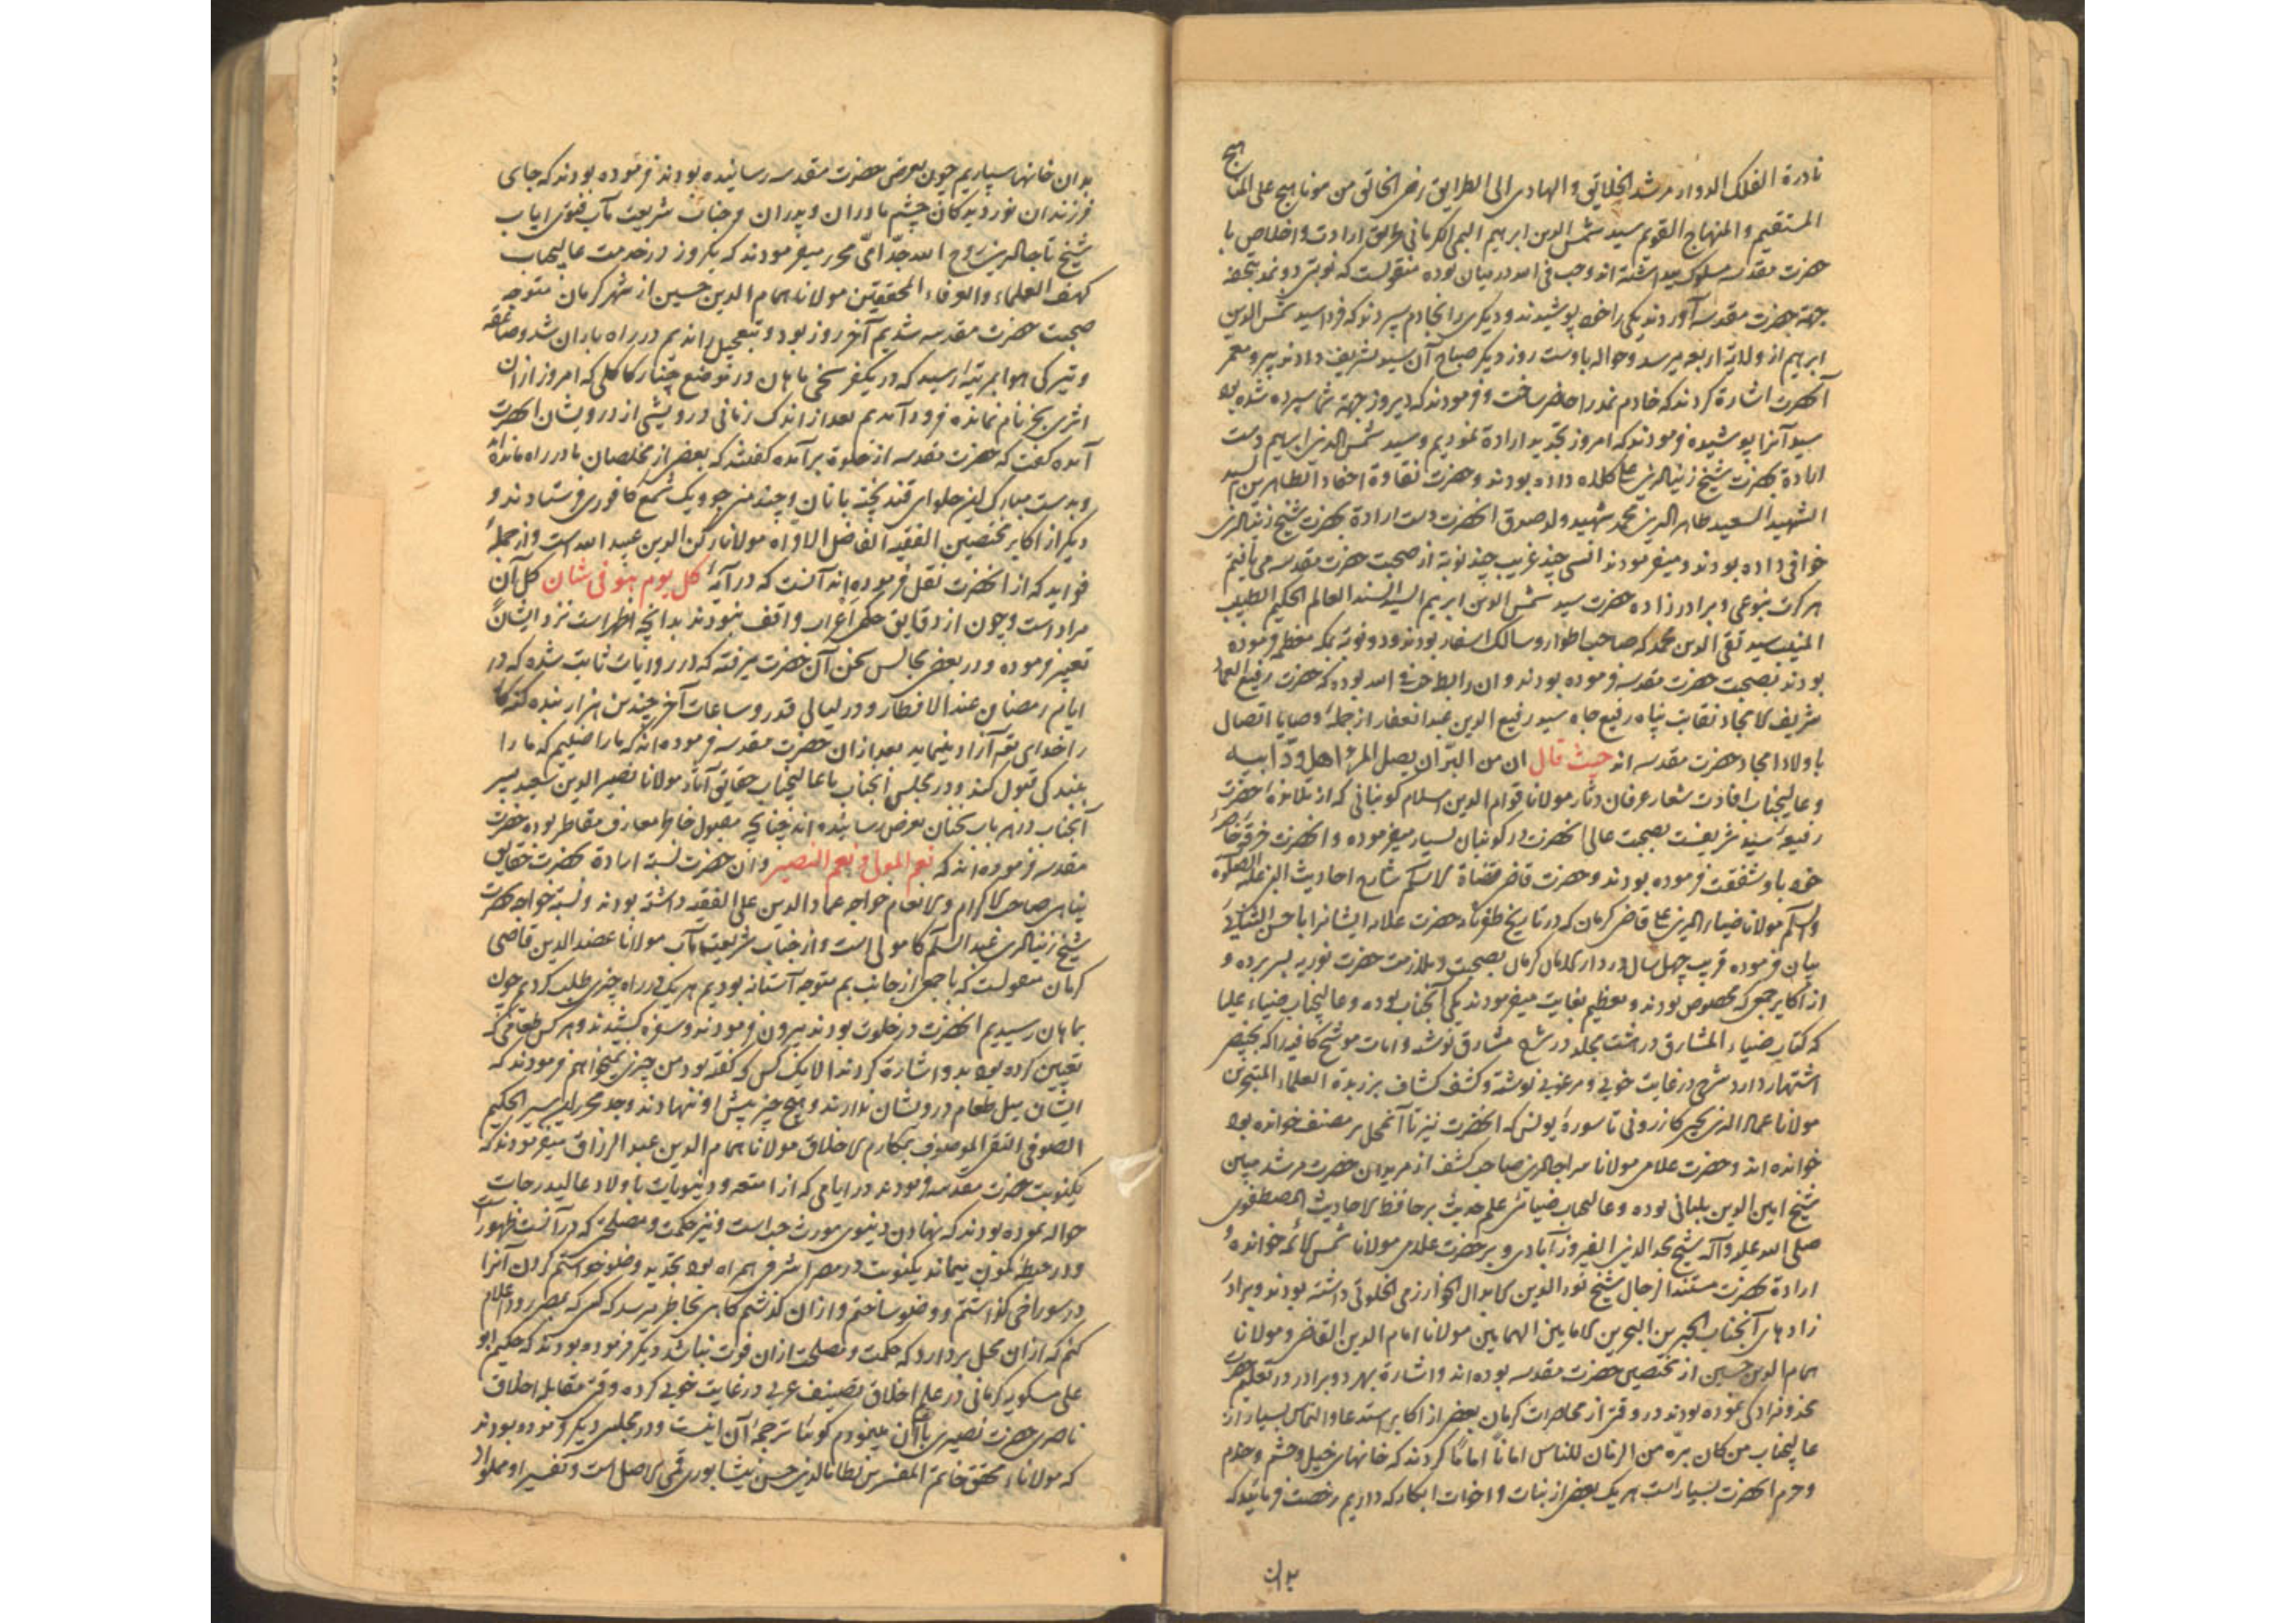 نادرة الفلک الدوار مرشد الخلایق و الهادی الی الطرایق رضی الخالق من مونا هیج علی المنا
هیج
المستقیم و المنهاج القویم سید شمس الدین ابرهیم البمی الکرمانی طریق ارادت و اخلاص با
حضرت مقدسه مسلوک میداشته اند و حب فی الله در میان بوده منقولست که نوبتی دو نمد بتحفه
جهة حضرت مقدسه آوردند یکی را خود پوشیدند و دیگری را بخادم سپردند که فردا سید شمس الدین
ابرهیم از ولایة اربعه میرسد و حواله باوست روز دیگر صباح آن سید تشریف دادند پیر و معمر
آنحضرت اشارة کردند که خادم نمد را حاضر ساخت و فرمودند که دیروز جهة شما سپرده شده بود
سید آنرا پوشیده فرمودند که امروز تجدید ارادة نمودیم و سید شمس الدین ابرهیم دست
ارادة بحضرت شیخ زین الدین علی کلاه داده بودند و حضرت نقاوة احفاد الطاهرین السید
الشهید السعید طاهر الدین محمد شهید ولد صدوق آنحضرت دست ارادة بحضرت شیخ زین الدین
خوافی داده بودند و میفرمودند انسی چند غریب چند نوبة از صحبت حضرت مقدسه می یافتیم
هر کرت بنوعی و برادرزاده حضرت سید شمس الدین ابرهیم السید السند العالم الحکیم الطبیب
المنیب سید تقی الدین محمد که صاحب اطوار و سالک اسفار بودند و دو نوبة بمکه معظمه فرموده
بودند بصحبت حضرت مقدسه فرموده بودند و آن رابطه حب فی الله بوده که حضرت رفیع العماد
شریف الامجاد نقابت پناه رفیع جاه سید رفیع الدین عبد الغفار از جمله وصایا اتصال
با ولاد امجاد حضرت مقدسه اند حیث قال ان من البر ان یصل المرء اهل ود ابیه
و عالیجناب افادت شعار عرفان دثار مولانا قوام الدین اسلام کوبنانی که از تلامذه حضرت
رفیعه سید شریفست بصحبت عالی آنحضرت در کوبنان بسیار میفرموده و آنحضرت خرقه خاصه
خود باو شفقت فرموده بودند و حضرت قاضی قضاة الاسلام شارح احادیث النبی علیه الصلوة
والسلام مولانا ضیاء الدین علی قاضی کرمان که در تاریخ حضرت علامه ایشانرا باحسن الثنا
بیان فرموده قریب چهل سال در دار الامان کرمان بصحبت و ملازمت حضرت نوریه بسر برده و
از اکابر جمعی که مخصوص بودند و تعظیم بغایت میفرمودند یکی آنجناب بوده و عالیجناب ضیاء علیا
که کتاب ضیاء المشارق در هشت مجلد در شرح مشارق نوشته و ابیات موشح کافیه را که بخبیصی
اشتهار دارد شرح در غایت خوبی و مرغوبی نوشته و کشف کشاف بر زبدة العلماء المتبحرین
مولانا عماد الدین یحیی کازرونی تا سورهٔ یونس که آنحضرت نیز تا آنمحل بر مصنف خوانده بود
خوانده اند و حضرت علامی مولانا سراج الدین صاحب کشف از مریدان حضرت مرشد مبین
شیخ امین الدین بلیانی بوده و عالیجناب ضیائی علم حدیث بر حافظ الاحادیث المصطفوی
صلی الله علیه وآله شیخ مجد الدین الفیروزآبادی و بر حضرت علامی مولانا شمس الائمه خوانده و
ارادة بحضرت مستند الرجال شیخ نور الدین کابدال الخوارزمی الخلوتی داشته بودند و برادر
زادهای آنجناب البحرین الامامین الهمامین مولانا امام الدین القاضی و مولانا
همام الدین حسین از مختصین حضرت مقدسه بوده اند و اشارة بهر دو برادر در تعلیم حضرت
مخدوم زادگی نموده بودند در وقتی از محاصرات کرمان بعضی از اکابر استدعا و التماس بسیار از
عالیجناب من کان بره من الزمان للناس امانا امانا کردند که خانهای خیل و حشم و خدم
و حرم آنحضرت بسیار است هر یک بعضی از بنات و اخوات ابکار که داریم رخصت فرمائید که
بدان
بدان خانها سپاریم چون بعرض حضرت مقدسه رسانیده بودند فرموده بودند که جای
فرزندان نور دیدکان چشم مادران و پدران و جناب شریعت مآب فتوی ایاب
شیخ تاج الدین روح الله جد امی محرر میفرمودند که یکروز در خدمت عالیجناب
کهف العلماء و العرفاء المحققین مولانا همام الدین حسین از شهر کرمان متوجه
صحبت حضرت مقدسه شدیم آخر روز بود و بتعجیل راندیم در راه باران شد و صاعقه
و تیرکی هوا بمرتبه رسید که در یکفرسخی ماهان در موضع چنار کاکلی که امروز از ان
اثری بجز نام نمانده فرود آمدیم بعد از اندک زمانی درویشی از درویشان آنحضرت
آمده گفت که حضرت مقدسه از خلوة برآمده گفتند که بعضی از مخلصان ما در راه مانده اند
و بدست مبارک این حلوای قند پخته با نان و چند من جو و یک شمع کافوری فرستادند و
دیگر از اکابر مختصین الفقیه الفاضل الاواه مولانا رکن الدین عبد الله است و از جمله
فواید که از آنحضرت نقل فرموده اند آنست که در آیه کل یوم هو فی شان کل آن
مراد است و چون از دقایق حکمی اعراب واقف نبودند بدانچه اظهر است نزد ایشان
تعبیر فرموده و در بعضی مجالس سخن آن حضرت میرفته که در روایات ثابت شده که در
ایام رمضان عند الافطار و در لیالی قدر و ساعات آخر چندین هزار بنده گنه کار
را خدای تعه آزاد مینماید بعد از ان حضرت مقدسه فرموده اند که ما راضییم که ما را
ببندگی قبول کند و در مجلس آنجناب با عالیجناب حقایق آثار مولانا نصیر الدین سعید پسر
آنجناب در هر باب سخنان بعرض رسانیده اند چنانچه مقبول خاطر معارف مقاطر بوده حضرت
مقدسه فرموده اند که نعم المولی و نعم النصیر و آن حضرت نسبة ارادة بحضرت حقایق
پناهی صاحب الاکرام و الانعام خواجه عماد الدین علی الفقیه داشته بودند و نسبة خواجه بحضرت
شیخ زین الدین عبد السلام کامویی است و از جناب شریعتمآب مولانا عضد الدین قاضی
کرمان منقولست که با جمعی از جانب بم متوجه آستانه بودیم هر یک در راه چیزی طلب کردیم چون
بماهان رسیدیم آنحضرت در خلوت بودند بیرون فرمودند و سفره کشیدند و هر کس طعامی که
تعیین کرده بود بدو اشارة کردند الا یک کس که گفته بود من چیزی نمیخواهم فرمودند که
ایشان میل طعام درویشان ندارند و هیچ چیز پیش او ننهادند و جد محرر این سیر الحکیم
الصوفی التقی الموصوف بمکارم الاخلاق مولانا همام الدین عبد الرزاق میفرمودند که
یکنوبت حضرت مقدسه فرمودند در ایامی که از امتعه و دنیویات باولاد عالیدرجات
حواله نموده بودند که نهادن دنیوی مورث حب است و نیز حکمت و مصلحتی که در آنست بظهور
و در حیطه مکون بیماند یکنوبت در مصر اشرفی همراه بود تجدید وضو خواستم کردن آنرا
در سوراخی گذاشتم و وضو ساختم و از ان گذشتم گاهی بخاطر میرسد که کسی که بمصر رود اعلام
کنم که از ان محل بردارد که حکمت و مصلحت از ان فوت نباشد دیگر فرموده بودند که حکیم ابو
علی مسکویه کرمانی در علم اخلاق تصنیف عربی در غایت خوبی کرده وقتی مقابله اخلاق
ناصری حضرت نصیری با آن مینمودم گوئیا ترجمه آن اینست و در مجلسی دیگر فرموده بودند
که مولاناء محقق خاتمة المفسرین نظام الدین حسن نیشابوری قمی الاصل است و تفسیر او مملو از